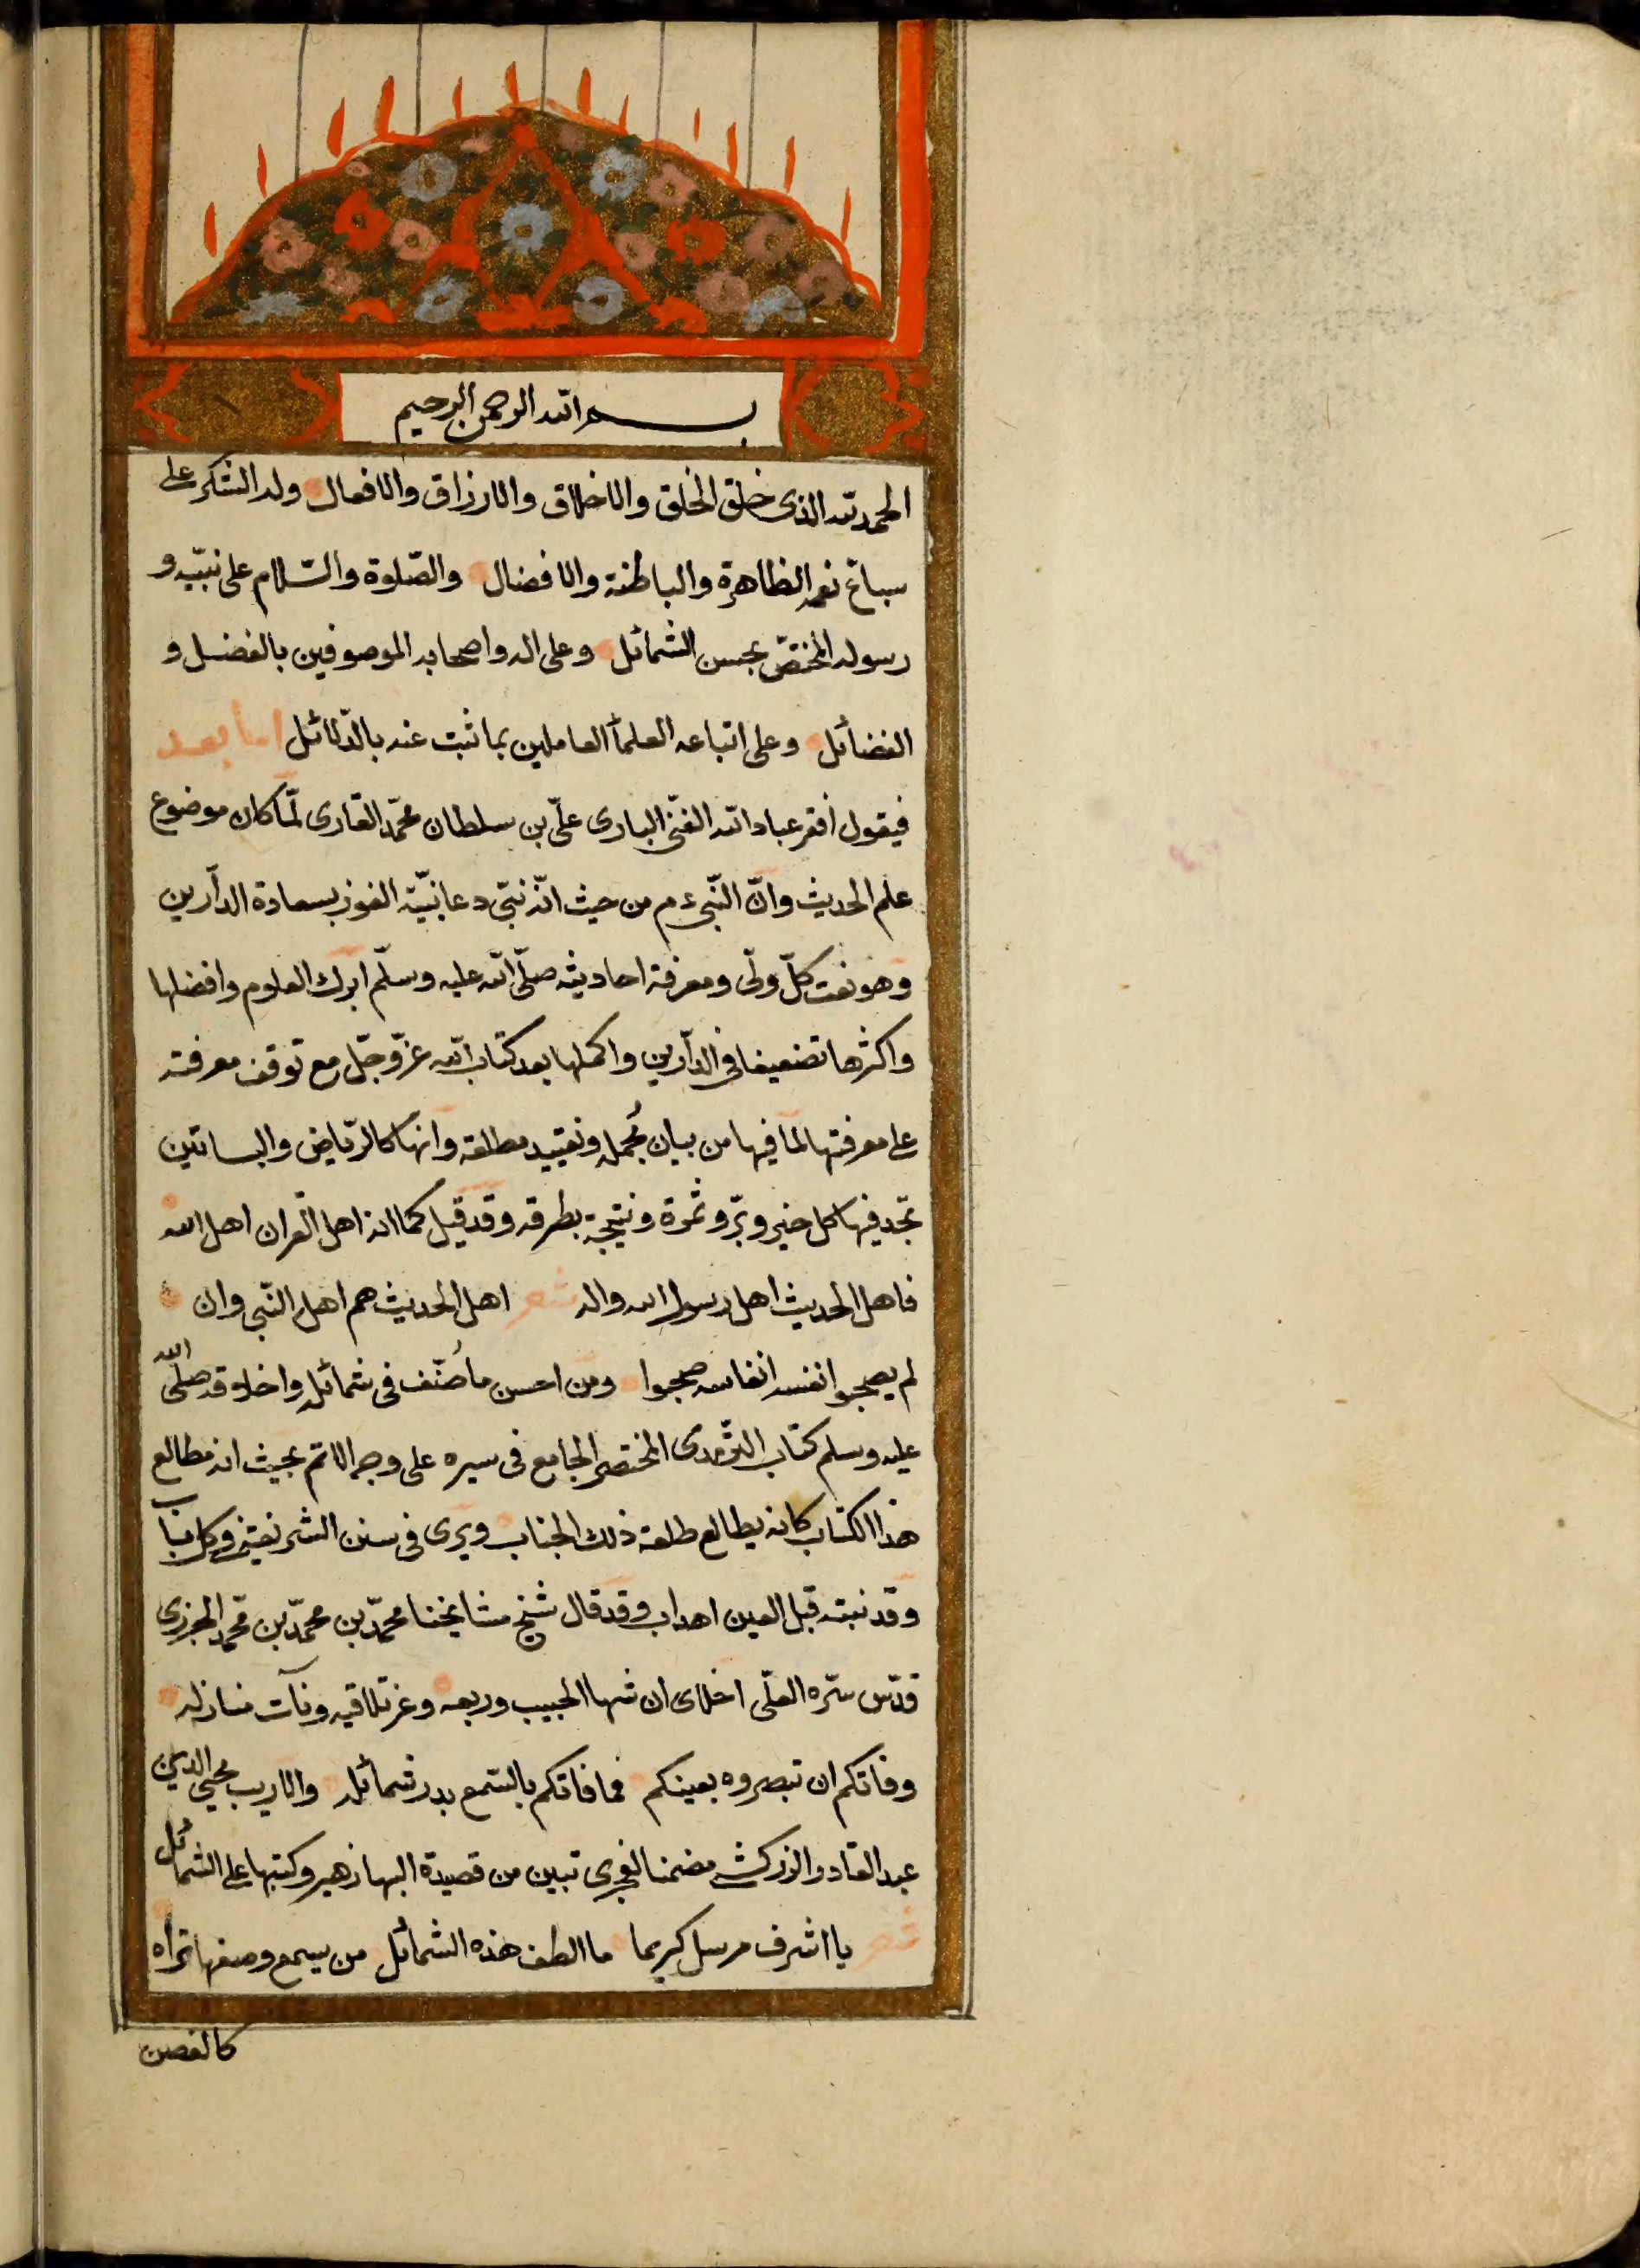 بسم الله الرحمن الرحيم
الحمد لله الذى خلق الخلق والاخلاق والارزاق والافعال وله الشكر على
سباغ نعمه الظاهرة والباطنة والافضال والصّلوة والسّلام على نبيّه و
رسوله المختصّ بحسن الشمائل وعلى اله واصحابه الموصوفين بالفضل و
الفضائل وعلى اتباعه العلمآ العاملين بما ثبت عنه بالدّلائل اما بعد
فيقول افقر عباد الله الغنىّ البارى علىّ بن سلطان محمّد القارى لمّا كان موضوع
علم الحديث وانّ النّبى ءم من حيث انّه نبىّ دعا نيّة الفوز بسعادة الدآرين
وهو نعت كلّ ولّى ومعرفة احاديثه صلّى الله عليه وسلّم ابرك العلوم وافضلها
واكثرها تضعيفا فى الدآرين واكملها بعد كتاب الله عزّ وجلّ مع توقف معرفته
على معرفتها لما فيها من بيان مُجمله وتقييد مطلقه وانها كالرّياض والبساتين
تجد فيها كل خير وبرّ وثمرة ونتيجة بطرقه وقد قيل كما انه اهل القران اهل الله
فاهل الحديث اهل رسول الله واله شعر اهل الحديث هم اهل النّبى وان
لم يصحبوا نفسه انفاسه صحبوا ومن احسن ما صُنّف فى شمائله واخلاقه صلّى الله
عليه وسلم كتاب الترّمدى المختصر الجامع فى سيره على وجه الاتم بحيث انه مطالع
هذا الكتاب كانه يطالع طلعة ذلك الجناب ويرى فى سنن الشريفة فى كل باب
وقد نبته قبل العين اهداب وقد قال شيخ مشايخنا محمّد بن محمّد بن محّمد الجزرى
قدّس سّره العلّى اخلاى ان شها الحبيب وربعه وعز تلاقيه ونآت منازله
وفاتكم ان تبصروه بعينكم فما فاتكم بالسّمع بدر شمائله والاريب محيى الدين
عبد القادر الزركشى مضمنا تبين من قصيدة البها زهير وكتبها على الشمائل
شعر يا اشرف مرسل كريما ما الطف هذه الشمائل من يسمع وصفها تراه
كالغصن